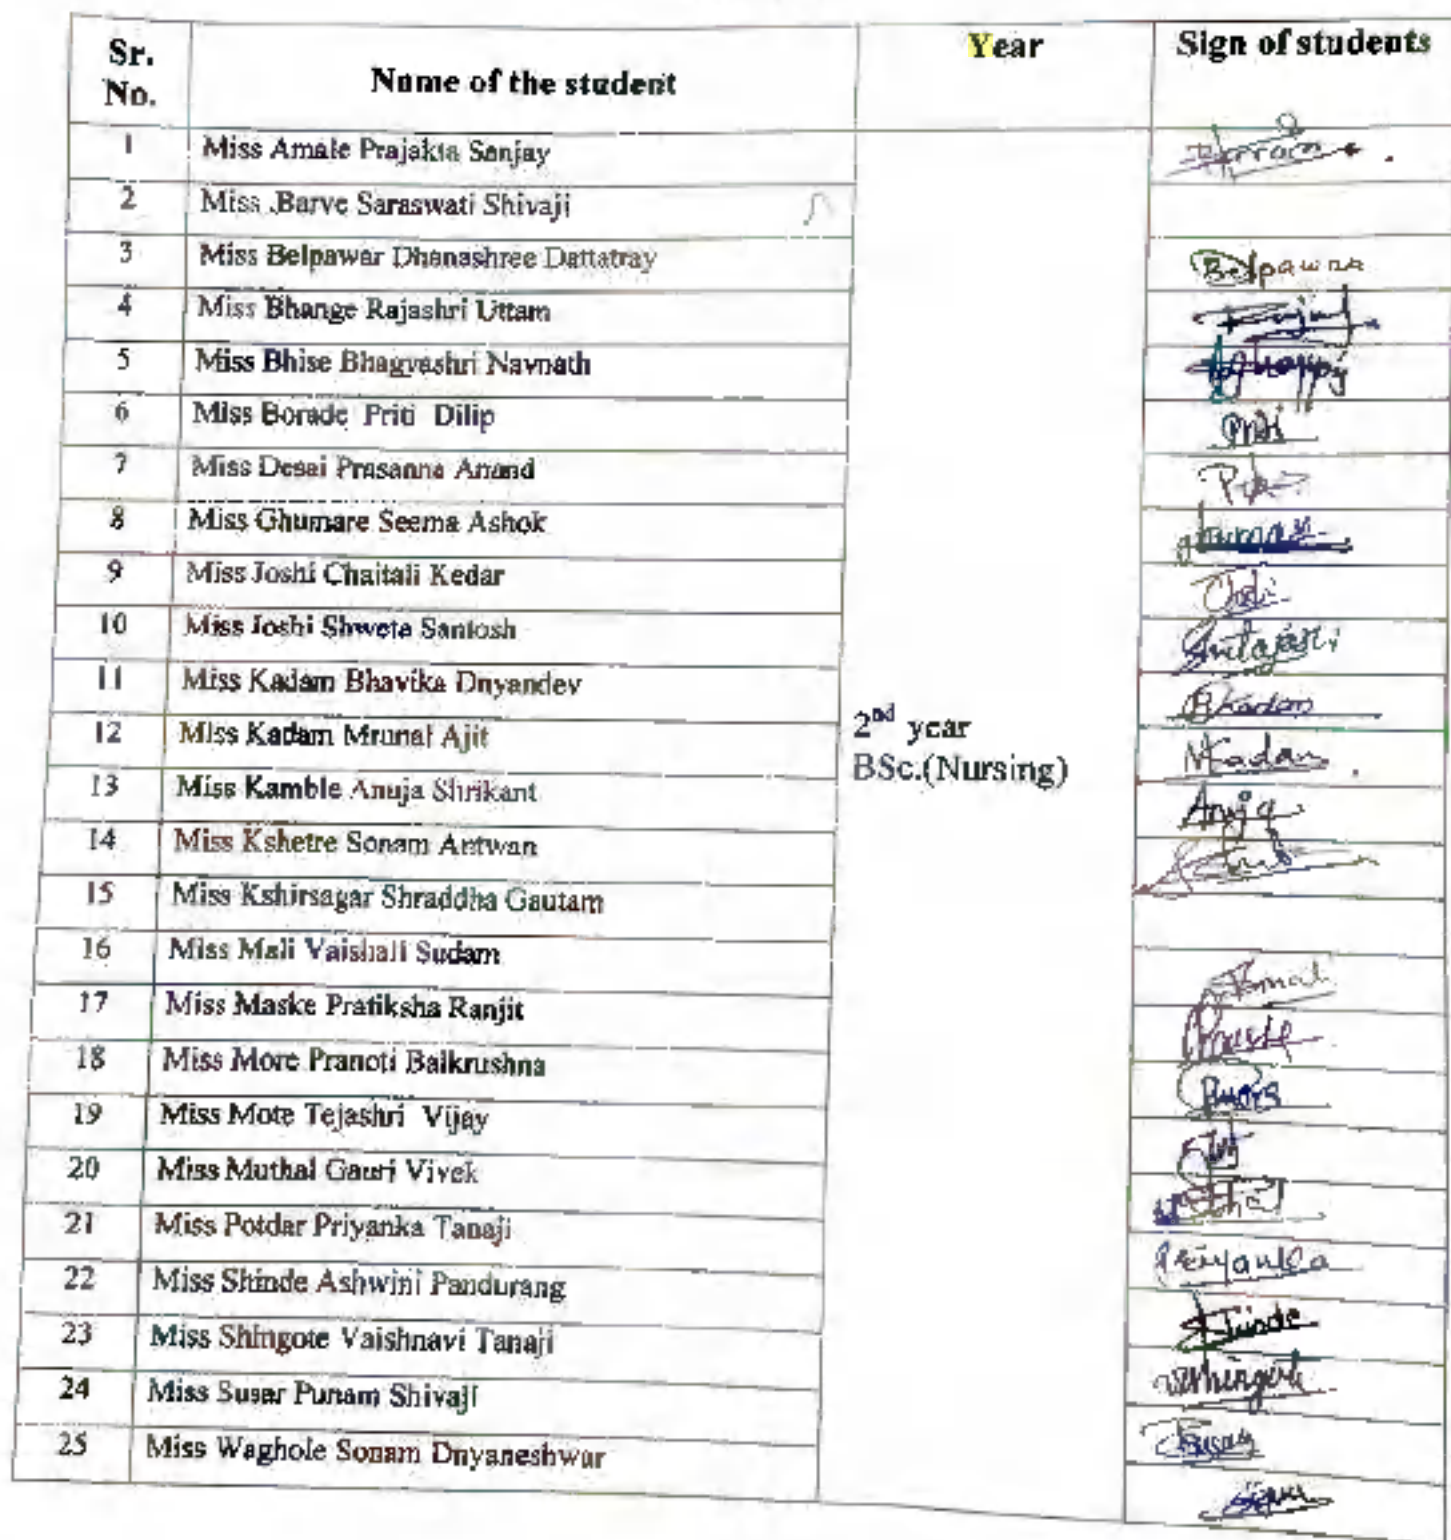 Sr. No. Name of the student Year Sign of students
1 Miss Amale Prajakta Sanjay
2 Miss .Barve Saraswati Shivaji
3 Miss Belpawar Dhanashree Dattatray Belpawar
4 Miss Bhange Rajashri Uttam
5 Miss Bhise Bhagyashri Navnath
6 Miss Borade Priti Dilip
7 Miss Desai Prasanna Anand
8 Miss Ghumare Seema Ashok
9 Miss Joshi Chaitali Kedar
10 Miss Joshi Shweta Santosh
11 Miss Kadam Bhavika Dnyandev BKadam
12 Miss Kadam Mrunal Ajit MKadam
2nd year
BSc.(Nursing)
13 Miss Kamble Anuja Shrikant Anuja
14 Miss Kshetre Sonam Antwan
15 Miss Kshirsagar Shraddha Gautam
16 Miss Mali Vaishali Sudam
17 Miss Maske Pratiksha Ranjit
18 Miss More Pranoti Balkrushna
19 Miss Mote Tejashri Vijay
20 Miss Muthal Gauri Vivek
21 Miss Potdar Priyanka Tanaji Priyanka
22 Miss Shinde Ashwini Pandurang Shinde
23 Miss Shingote Vaishnavi Tanaji
24 Miss Susar Punam Shivaji
25 Miss Waghole Sonam Dnyaneshwar